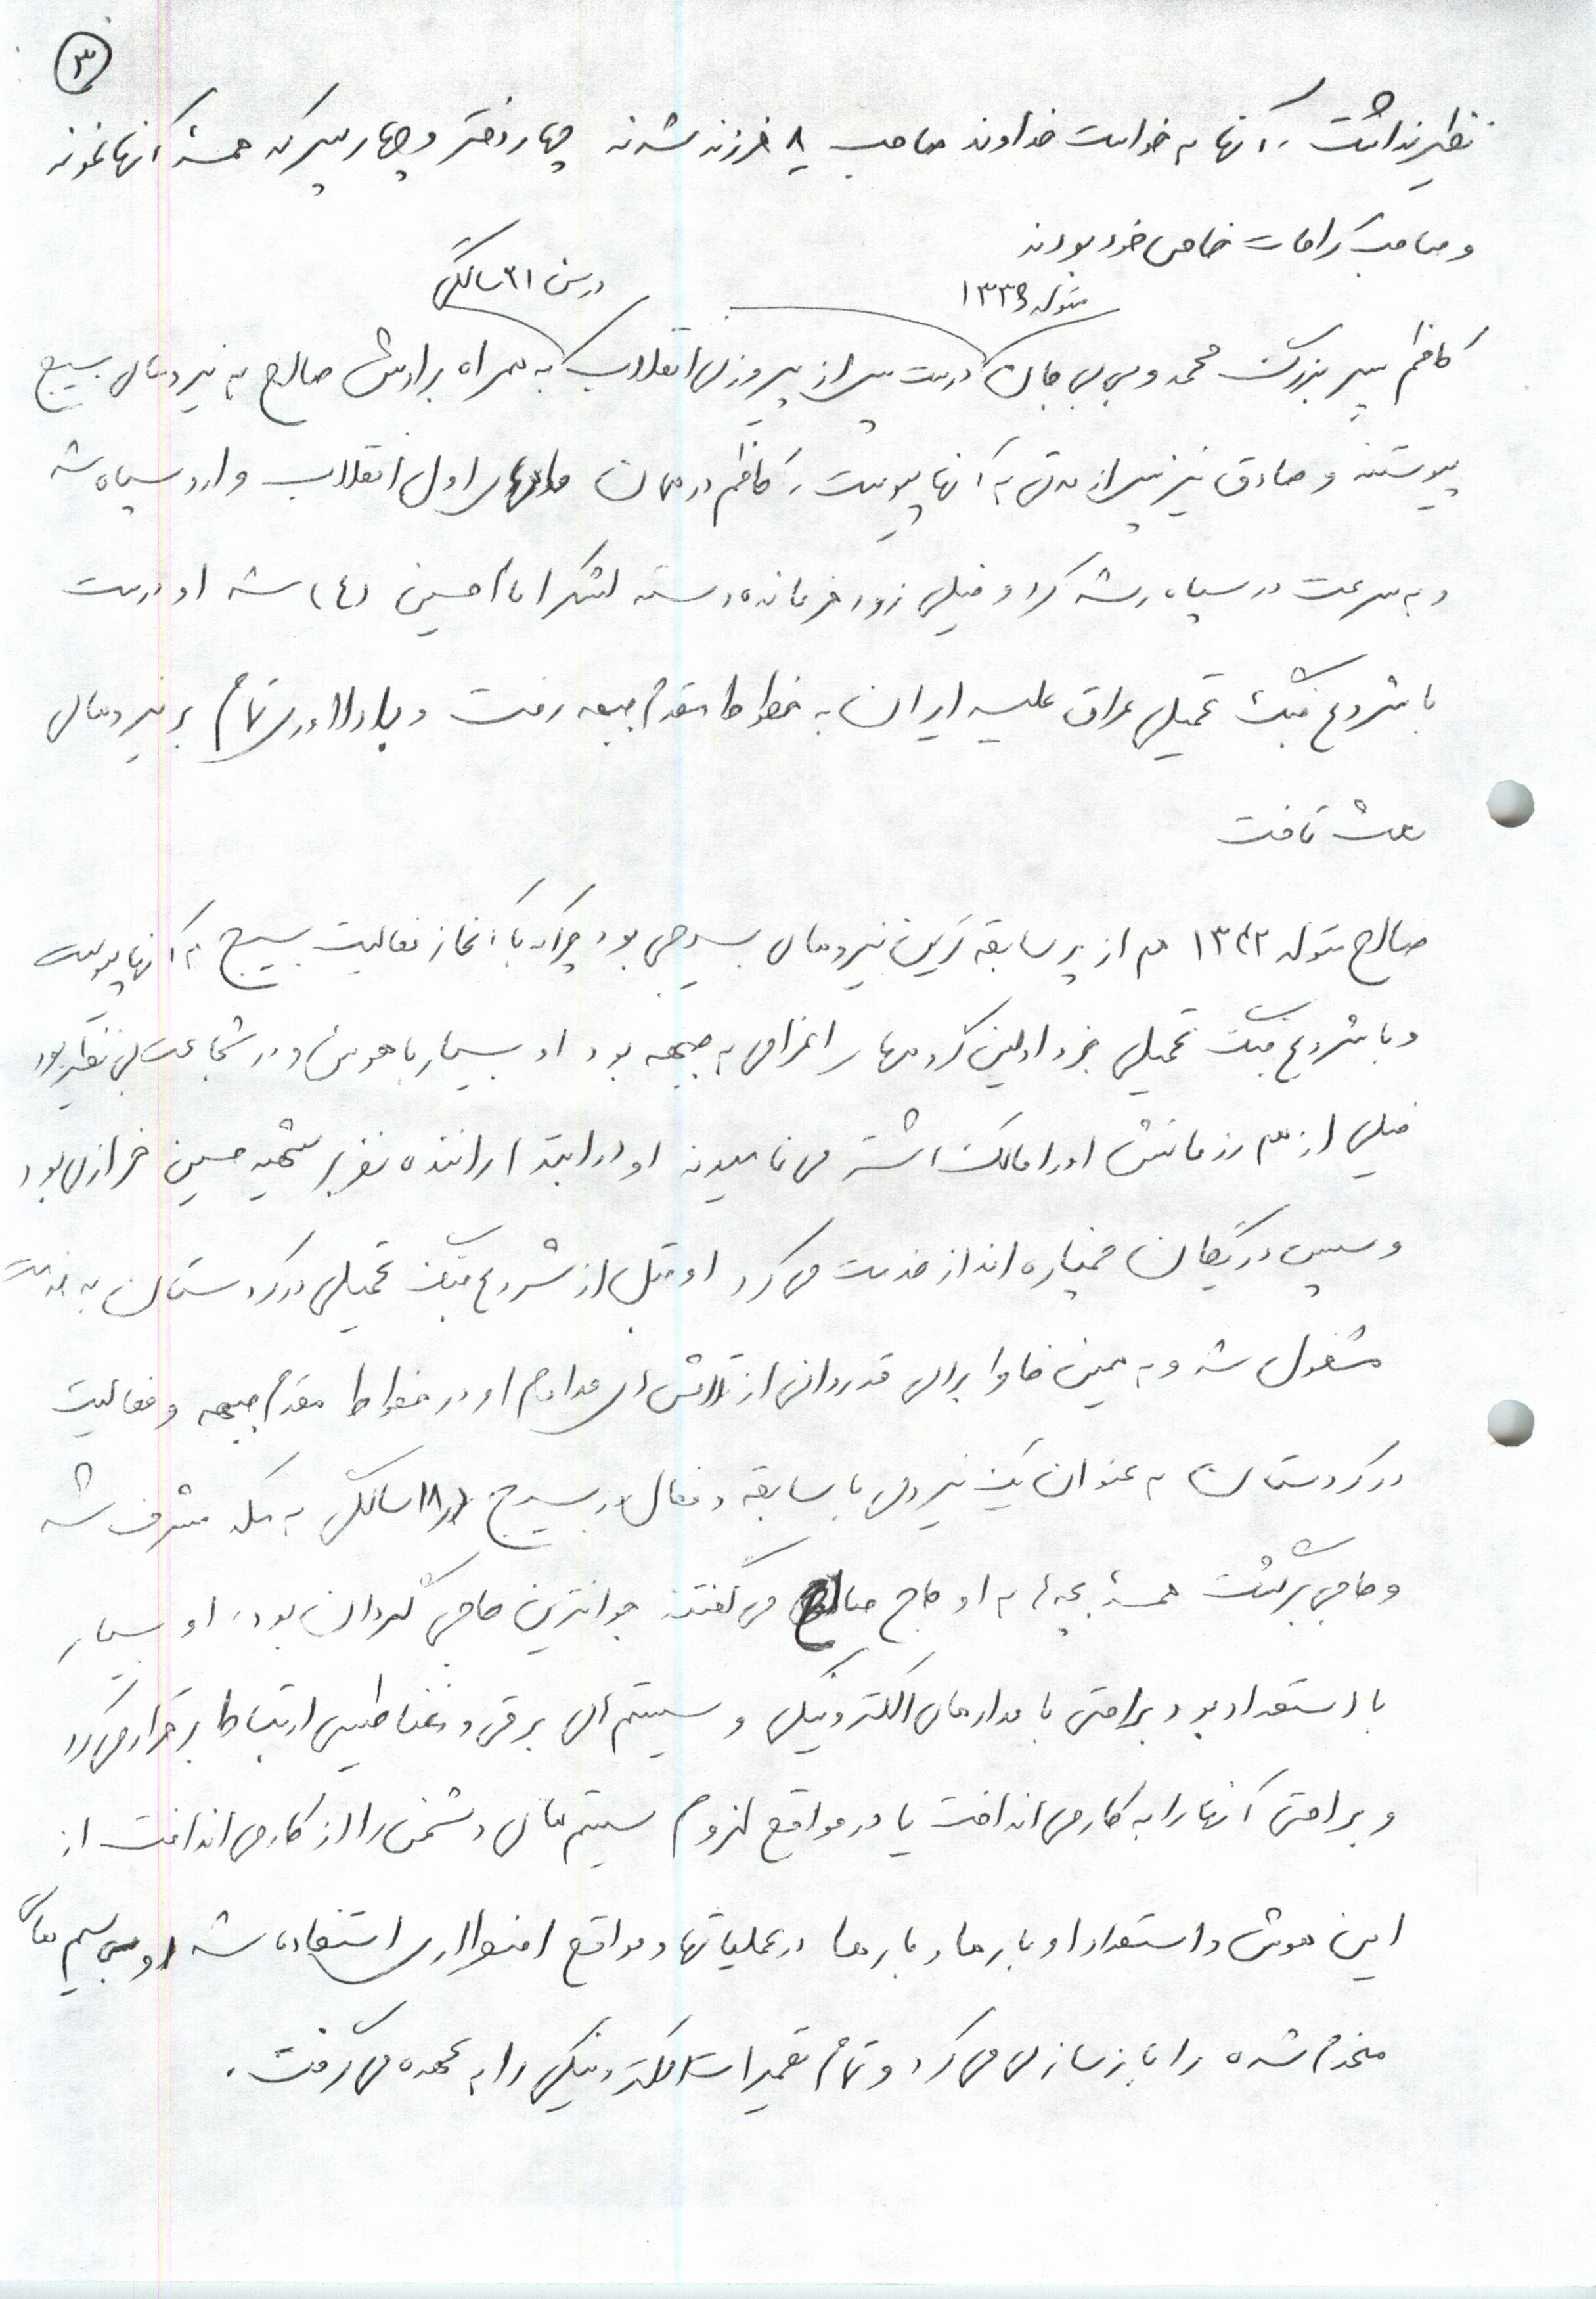 ۳
نظیر نداشت. آنها به خواست خداوند صاحب ۸ فرزند شدند چهار دختر و چهار پسر که همه آنها نمونه
و صاحب کرامات خاص خود بودند
متولد ۱۳۳۹ در سن ۲۱ سالگی
کاظم پسر بزرگ محمد و بی بی جان درست پس از پیروزی انقلاب به همراه برادرش صالح به نیروهای بسیج
پیوستند و صادق نیز پس از مدتی به آنها پیوست. کاظم در همان ماههای اول انقلاب وارد سپاه شد
و به سرعت در سپاه رشد کرد و خیلی زود فرمانده دسته لشکر امام حسین (ع) شد او درست
با شروع جنگ تحمیلی عراق علیه ایران به خطوط مقدم جبهه رفت و با تمام بر نیروهای
بعث تاخت
صالح متولد ۱۳۴۲ هم از پر سابقه ترین نیروهای بسیجی بود چرا که با آغاز فعالیت بسیج به آنها پیوست
و با شروع جنگ تحمیلی جزو اولین گروهها ی اعزامی به جبهه بود او بسیار باهوش و در شجاعت بی نظیر بود
خیلی از هم رزمانش او را مالک اشتر می نامیدند او در ابتدا راننده نفربر شهید حسین خرازی بود
و سپس در گردان خمپاره انداز خدمت می کرد او قبل از شروع جنگ تحمیلی در کردستان به خدمت
مشغول شد و به همین خاطر برای قدردانی از تلاش های مداوم او در خطوط مقدم جبهه و فعالیت
در کردستان به عنوان یک نیروی با سابقه و فعال در بسیج در ۱۸ سالگی به مکه مشرف شد
و حاجی برگشت همه بچه ها به او حاج صالح می گفتند جوانترین حاجی گردان بود. او بسیار
با استعداد بود براحتی با مدارهای الکترونیکی و سیستم های برقی و مغناطیسی ارتباط برقرار می کرد
و براحتی آنها را به کار می انداخت یا در مواقع لزوم سیستم های دشمن را از کار می انداخت از
این هوش و استعداد او بارها و بارها در عملیاتها و مواقع اضطراری استفاده شد او بی سیم های
منهدم شده را بازسازی می کرد و تمام تعمیرات الکترونیکی را به عهده می گرفت.